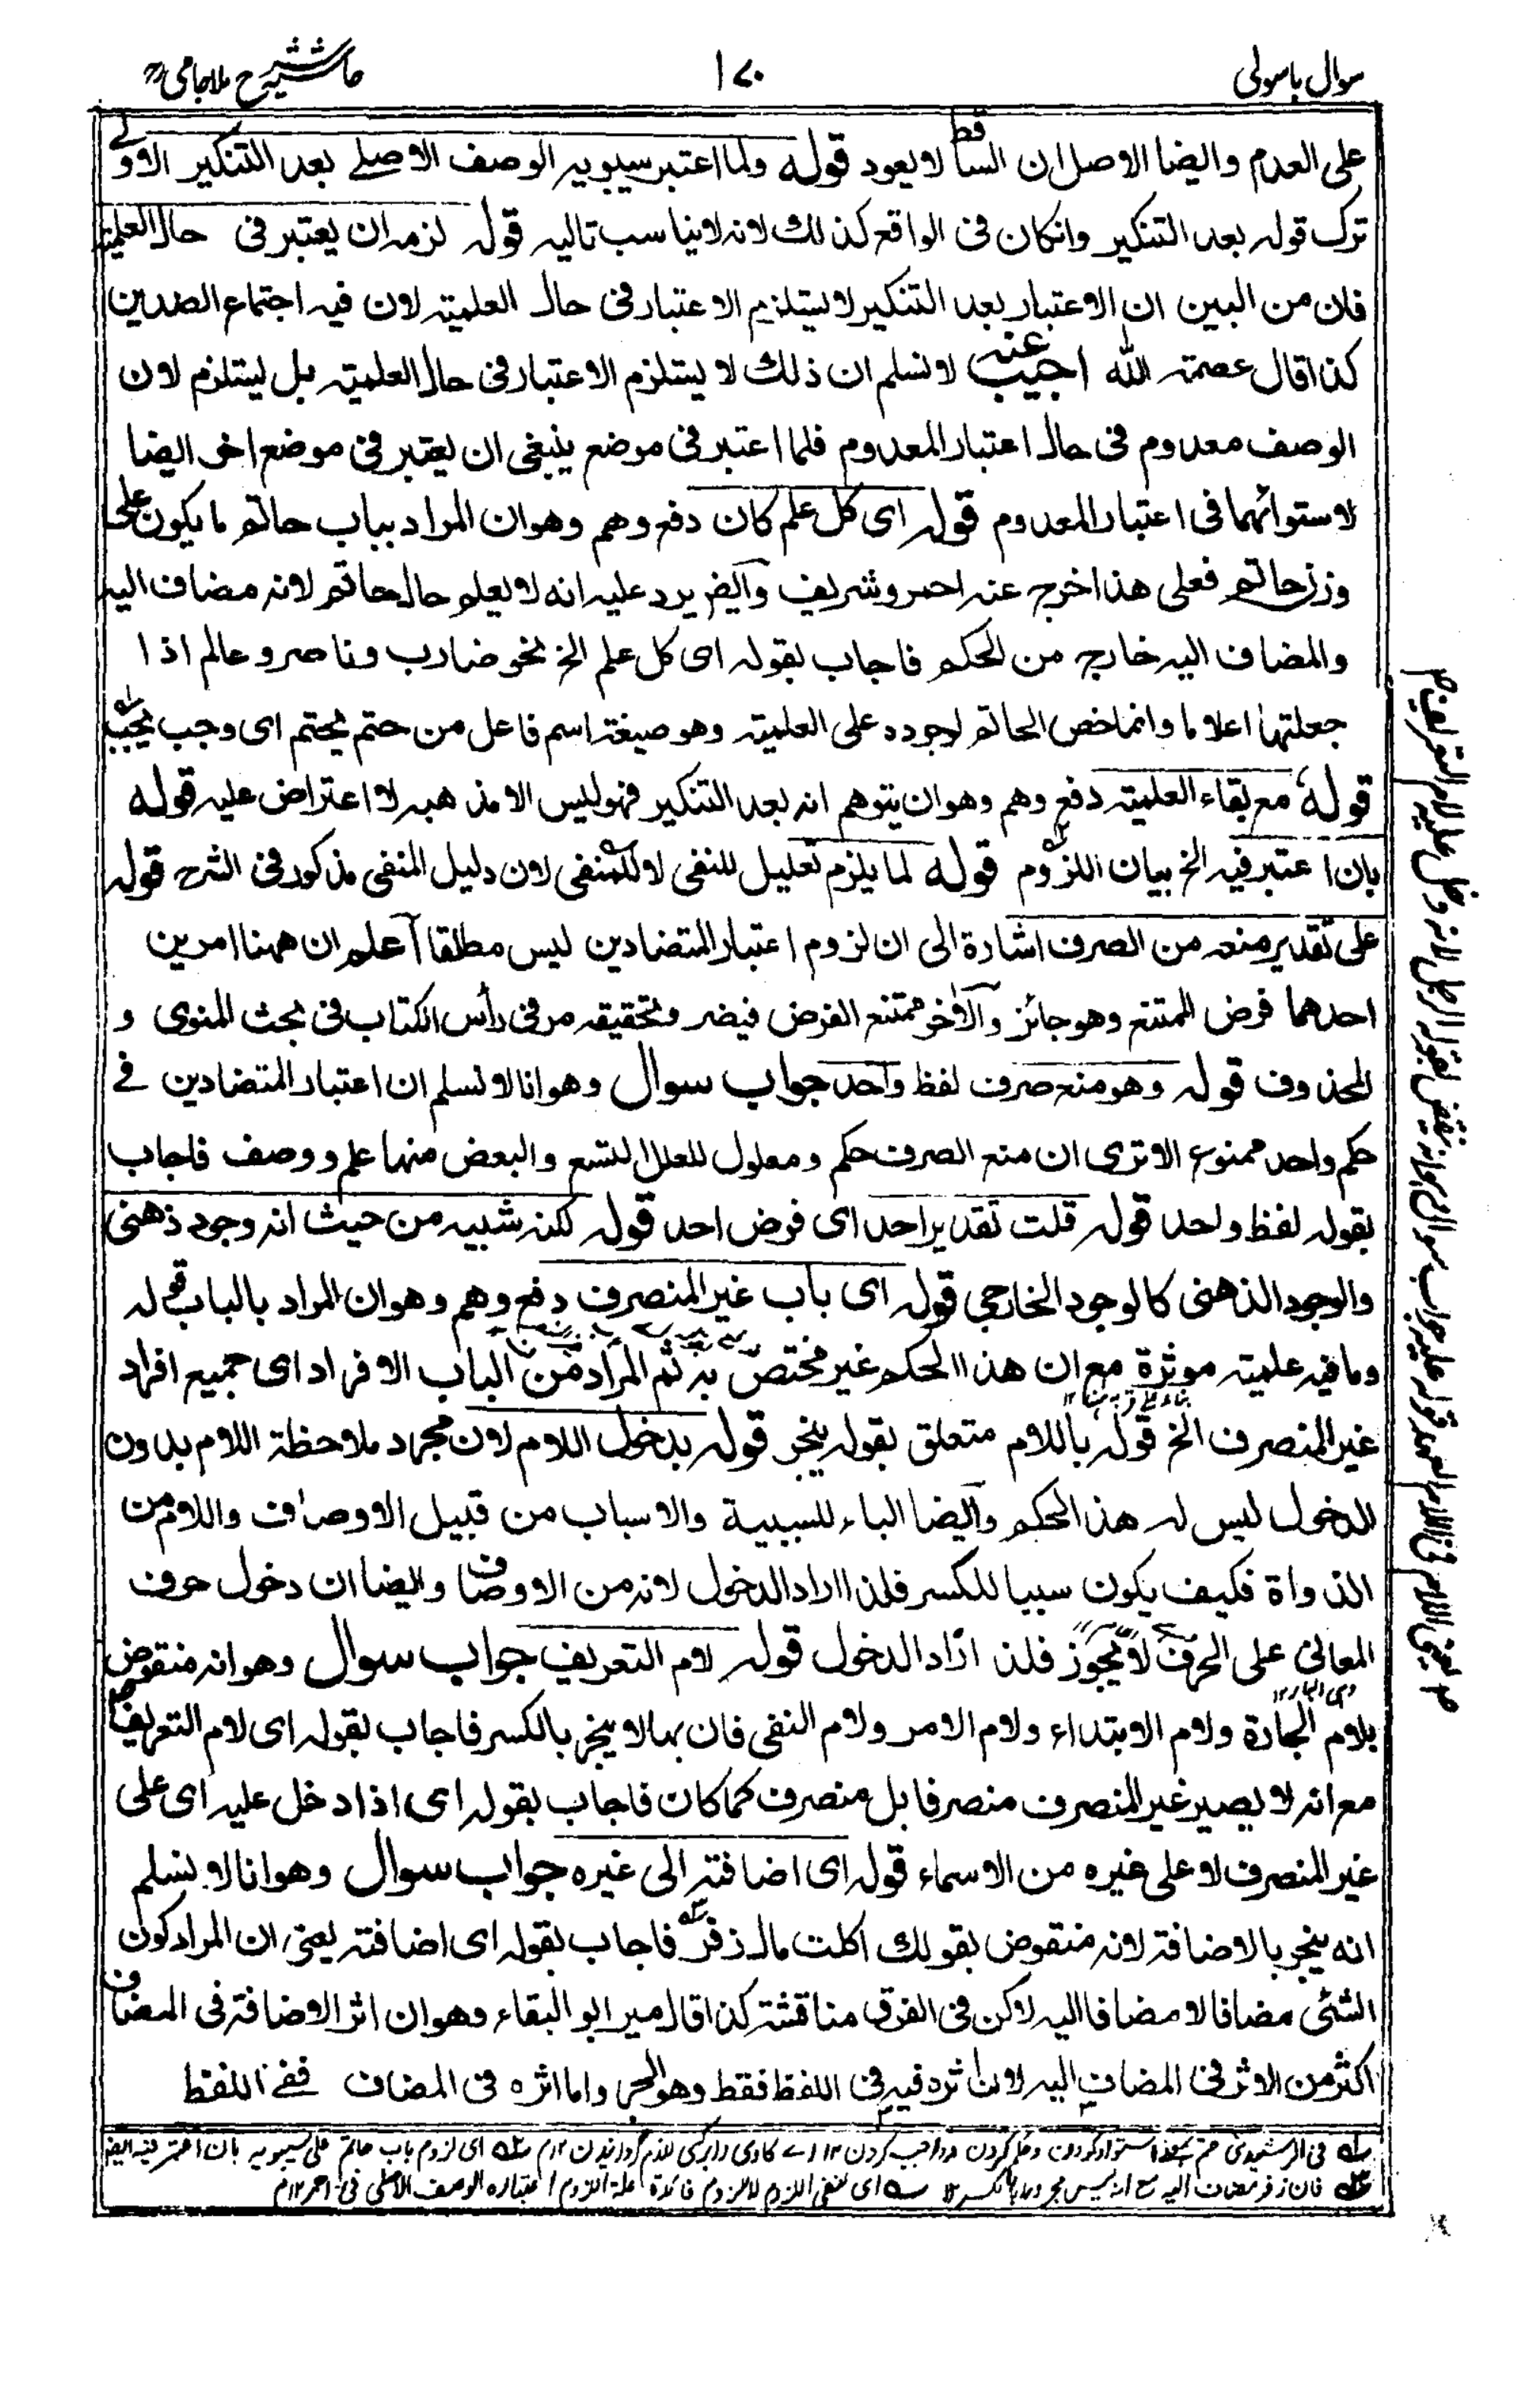 سوال باسولی
۱۷۰
حاشیہ شرح ملا جامی
علی العدم وایضا الاصل ان الساقط لا یعود قولہ ولما اعتبر سیبویہ الوصف الاصلے بعد التنکیر الاولے
ترک قولہ بعد التنکیر وانکان فی الواقع کذلک لانہ لایناسب تالیہ قولہ لزمہ ان یعتبر فی حال العلمیۃ
فان من البین ان الاعتبار بعد التنکیر لا یستلزم الاعتبار فی حال العلمیۃ لان فیہ اجتماع الضدین
کذا قال عصمۃ اللہ اجیب عنہ لا نسلم ان ذلک لا یستلزم الاعتبار فی حال العلمیۃ بل یستلزم لان
الوصف معدوم فی حال اعتبار المعدوم فلما اعتبر فی موضع ینبغی ان یعتبر فی موضع اخر ایضا
لاستوائهما فی اعتبار المعدوم قولہ ای کل علم کان دفع وهم وهو ان المراد بباب حاتم ما یکون علی
وزن حاتم فعلی هذا اخرج عنہ احمر وشریف وایضا یرد علیہ انہ لا یعلم حال حاتم لانہ مضاف الیہ
والمضاف الیہ خارج من الحکم فاجاب بقولہ ای کل علم الخ نحو ضارب وناصر وعالم اذا
جعلتها اعلاما وانما خص الحاتم لوجوده علی العلمیۃ وهو صیغۃ اسم فاعل من حتم یحتم ای وجب یجب
قولہ مع بقاء العلمیۃ دفع وهم وهو ان یتوهم انہ بعد التنکیر فهو لیس الا مذهبہ لا اعتراض علیہ قولہ
بان اعتبر فیہ الخ بیان اللزوم قولہ لما یلزم تعلیل للنفی لا للمنفی لان دلیل المنفی مذکور فی الشرح قولہ
علی تقدیر منعہ من الصرف اشارة الی ان لزوم اعتبار المتضادین لیس مطلقا اعلم ان ههنا امرین
احدهما فرض الممتنع وهو جائز والاخر ممتنع الفرض فیضر وتحقیقہ مر فی رأس الکتاب فی بحث المنوی و
المحذوف قولہ وهو منع صرف لفظ واحد جواب سوال وهو انا لا نسلم ان اعتبار المتضادین فے
حکم واحد ممنوع الا تری ان منع الصرف حکم ومعلول للعلل التسع والبعض منها علم ووصف فاجاب
بقولہ لفظ واحد قولہ قلت تقدیر احد ای فرض احد قولہ لکنہ شبیہ من حیث انہ وجود ذهنی
والوجود الذهنی کالوجود الخارجی قولہ ای باب غیر المنصرف دفع وهم وهو ان المراد بالباب قولہ
وما فیہ علمیۃ موثرة مع ان هذا الحکم غیر مختص بہ ثم المراد من الباب الافراد ای جمیع افراد
غیر المنصرف الخ قولہ باللام متعلق بقولہ ینجر قولہ بدخول اللام لان مجرد ملاحظة اللام بدون
الدخول لیس لہ هذا الحکم وایضا الباء للسببیة والاسباب من قبیل الاوصاف واللام من
الذواة فکیف یکون سببا للکسر فلذا اراد الدخول لانہ من الاوصاف وایضا ان دخول حرف
المعانی علی الحرف لا یجوز فلذا اراد الدخول قولہ لام التعریف جواب سوال وهو انہ منقوض
بلام الجارة ولام الابتداء ولام الامر ولام النفی فان بها لا ینجر بالکسر فاجاب بقولہ ای لام التعریف
مع انہ لا یصیر غیر المنصرف منصرفا بل منصرف کما کان فاجاب بقولہ ای اذا دخل علیہ ای علی
غیر المنصرف لا علی غیره من الاسماء قولہ ای اضافتہ الی غیره جواب سوال وهو انا لا نسلم
انہ ینجر بالاضافۃ لانہ منقوض بقولک اکلت مال زفر فاجاب بقولہ ای اضافتہ یعنی ان المراد کون
الشئی مضافا لا مضافا الیہ لاکن فی الفرق مناقشۃ کذا قال میر ابو البقاء وهو ان اثر الاضافۃ فی المضاف
اکثر من الاثر فی المضاف الیہ لان اثره فیہ فی اللفظ فقط وهو الجر واما اثره فی المضاف ففی اللفظ
ای لزوم باب حاتم علی سیبویہ بان اعتبر فیہ ایضا
فان زفر مضاف الیہ مع انہ لیس مجرورا بالکسر ۱۲ ای لنفی اللزوم لا للزوم فائدة علۃ اللزوم اعتباره الوصف الاصلی فی احمر ۱۲م